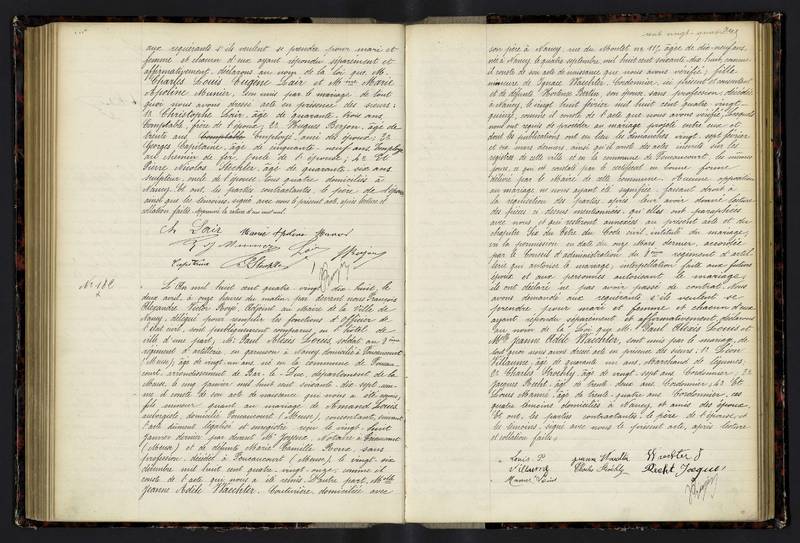 aux requérants s'ils veulent se prendre pour mari et
femme et chacun d'eux ayant répondu séparément et
affirmativement, déclarons au nom de la loi que M.
Charles Louis Eugène Lair et Mlle Marie
Apoline Munier, sont unis par le mariage de tout
quoi nous avons dressé acte en présence des sieurs:
1° Christophe Lair, âgé de quarante-trois ans,
Comptable, frère de l'époux; 2° Hugues Bojon, âgé de
trente ans, Employé, ami des époux; 3°
Georges Capitaine, âgé de cinquante-neuf ans, Employé
au chemin de fer, oncle de l'épouse; 4° Et
Pierre Nicolas Stechler, âgé de quarante-six ans
Sculpteur, oncle de l'épouse tous quatre domiciliés à
Nancy. Et ont, les parties contractantes, le père de l'époux
ainsi que les témoins, signé avec nous le présent acte, après lecture et
collation faite.
Ch Lair Marie Apoline Munier
Munier Lair
Capitaine
N° 182
L'An mil huit cent quatre vingt dix-huit, le
deux avril, à onze heures du matin, par devant nous François
Alexandre Victor Boyé, Adjoint au Maire de la Ville de
Nancy, délégué pour remplir les fonctions d'officier de
l'état civil, sont publiquement comparus, en l'hôtel de
ville d'une part, M. Paul Alexis Louis, soldat au 8ème
régiment d'artillerie, en garnison à Nancy domicilié à Foucaucourt
(Meuse), âgé de vingt-un ans, né en la commune de
arrondissement de Bar-le-Duc, département de la
Meuse, le cinq janvier mil huit cent soixante-dix-sept, comme
il conste de son acte de naissance qui nous a été remis,
fils, mineur quant au mariage de Amand Louis
aubergiste, domicilié Foucaucourt (Meuse), consentant, suivant
l'acte dûment légalisé et enregistré reçu le vingt-huit
janvier dernier par devant Me Joyeux, Notaire à Beauzée
(Meuse) et de défunte Marie Camille Rome, sans
profession, décédée à Foucaucourt (Meuse), le vingt-six
décembre mil huit cent quatre-vingt-onze, comme il
conste de l'acte qui nous a été remis. D'autre part, Mlle
Jeanne Adèle Waechter, Couturière, domiciliée avec
son père à Nancy, rue du Montet n° 119, âgée de dix-neuf ans,
née à Nancy, le quatre septembre mil huit cent soixante dix-huit, comme
il conste de son acte de naissance que nous avons vérifié; fille
mineure de Ignace Waechter, Cordonnier, ici présent et consentant
et de défunte Hortense Bertin, son épouse sans profession, décédée
à Nancy, le vingt huit février mil huit cent quatre vingt-
quinze, comme il conste de l'acte que nous avons vérifié, Lesquels
nous ont requis de procéder au mariage projeté entre eux et
dont les publications ont eu lieu les dimanches vingt-sept février
et six mars derniers, ainsi qu'il conste des actes inscrits sur les
registres de cette ville et en la commune de Foucaucourt, les mêmes
jours, ce qui est constaté par le certificat en bonne forme
délivré par le Maire de cette commune. Aucune opposition
au mariage ne nous ayant été signifiée, faisant droit à
la réquisition des parties, après leur avoir donné lecture
des pièces ci-dessus mentionnées, qu'elles ont paraphées
avec nous, et qui resteront annexées au présent acte et du
chapitre Six du titre du Code civil, intitulé du mariage;
vu la permission en date du onze Mars dernier, accordée
par le Conseil d'administration du 8ème régiment d'artil-
lerie qui autorise le mariage; interpellation faite aux futurs
époux et aux personnes autorisant le mariage,
ils ont déclaré ne pas avoir passé de contrat. Nous
avons demandé aux requérants s'ils veulent se
prendre pour mari et femme et chacun d'eux
ayant répondu séparément et affirmativement déclarons
au nom de la loi que M. Paul Alexis Louis et
Mlle Jeanne Adèle Waechter, sont unis par le mariage, de
tout quoi nous avons dressé acte en présence des sieurs: 1° Léon
Villaume, âgé de quarante un ans, Marchand de légumes;
2° Charles Stroehly, âgé de vingt-sept ans, Cordonnier; 3°
Jacques Recht, âgé de trente-deux ans, Cordonnier; 4° Et
Louis Marmé, âgé de trente-quatre ans, Cordonnier, ces
quatre témoins domiciliés à Nancy, et amis des époux.
Et ont, les parties contractantes, le père de l'épouse, et
les témoins, signé avec nous le présent acte, après lecture
et collation faite.
Louis P Jeanne Waechter Waechter J
Villaume Recht Jacques